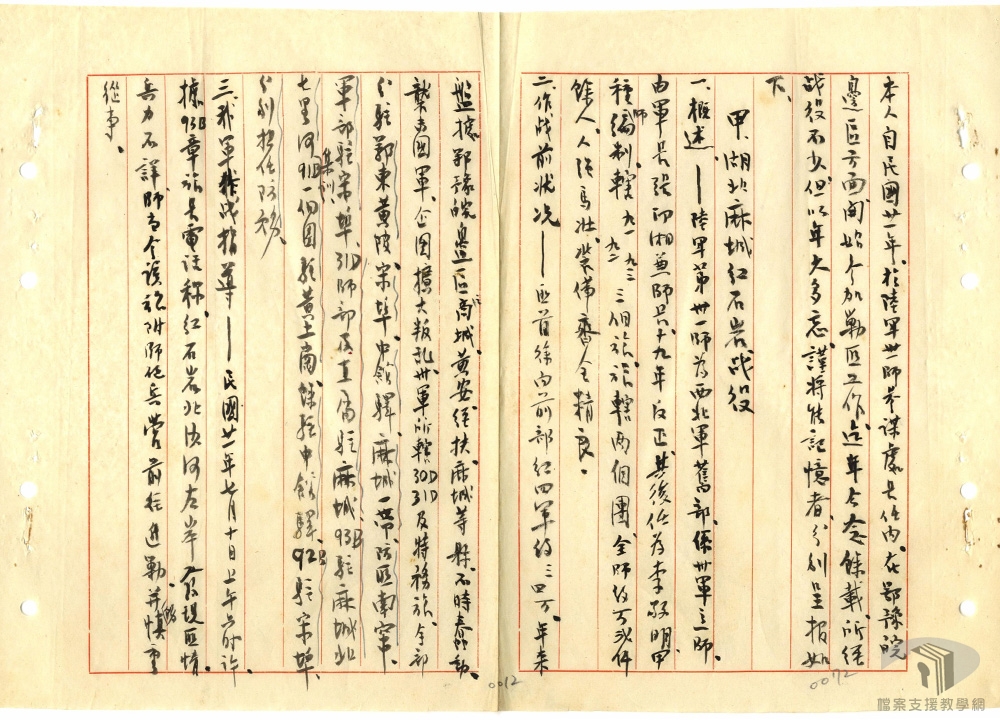 本人自民國廿一年、於陸軍卅一師參謀處長任內、在鄂豫皖
邊區方面開始參加勦匪工作、近年七念餘載、所經
战役不少、但以年久多忘、謹將能記憶者、分別呈报如
下、
甲、湖北麻城紅石岩战役
一、概述——陸軍第卅一師為西北軍舊部、係卅軍之師、
由軍長張印湘兼師長、十九年反正、其後任為李敬明、甲
種師編制、轄九一九二九三三個旅、旅轄两個團、全師約万弍仟
餘人、人强馬壯、裝備齊全精良。
二、作战前狀況——匪首徐向前部紅四軍約三四万、年來
盤據鄂豫皖邊區、商城、黄安、經扶、麻城等縣、不時蠢動
襲击國軍、企圖擴大叛乱、卅軍所轄30D31D及特務旅、全部
分駐鄂東黄陂、宋埠、中館驛、麻城一帶、防區南寬、
軍部駐宋埠、31D師部及直属駐麻城、93B駐麻城北
七里河、91B一個團駐黄土崗、餘駐中館驛、92B駐宋埠、集訓
分別担任防務、
三、我軍作战指導——民國廿一年七月十日上午六时许、
據93B章旅長電话称、紅石岩北沙河左岸、發現匪情、
兵力不詳、師長令该旅附師砲兵營前往進勦、并慎重
從事、
0012
0072
檔案支援教學網